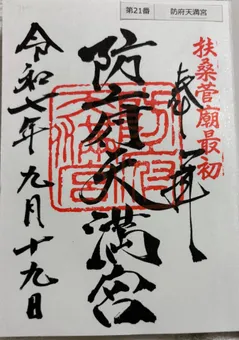 第21番 防府天満宮
扶桑菅廟最初
奉拝
防府天満宮
令和七年九月十九日